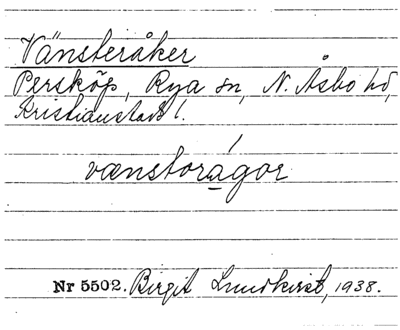 Vänsteråker
Persköp, Rya sn, N. Åsbo hd,
Kristianstads l.
vænstorágor
Nr 5502. Birgit Lundkvist, 1938.